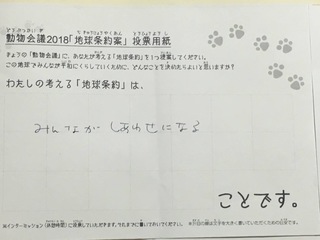 動物会議2018「地球条約案」投票用紙
きょうの「動物会議」に、あなたが考える「地球条約」を1つ提案してください。
この地球でみんなが平和にくらしていくために、どんなことを決めたらよいと思いますか？
わたしの考える「地球条約」は、
みんなが しあわせになる
ことです。